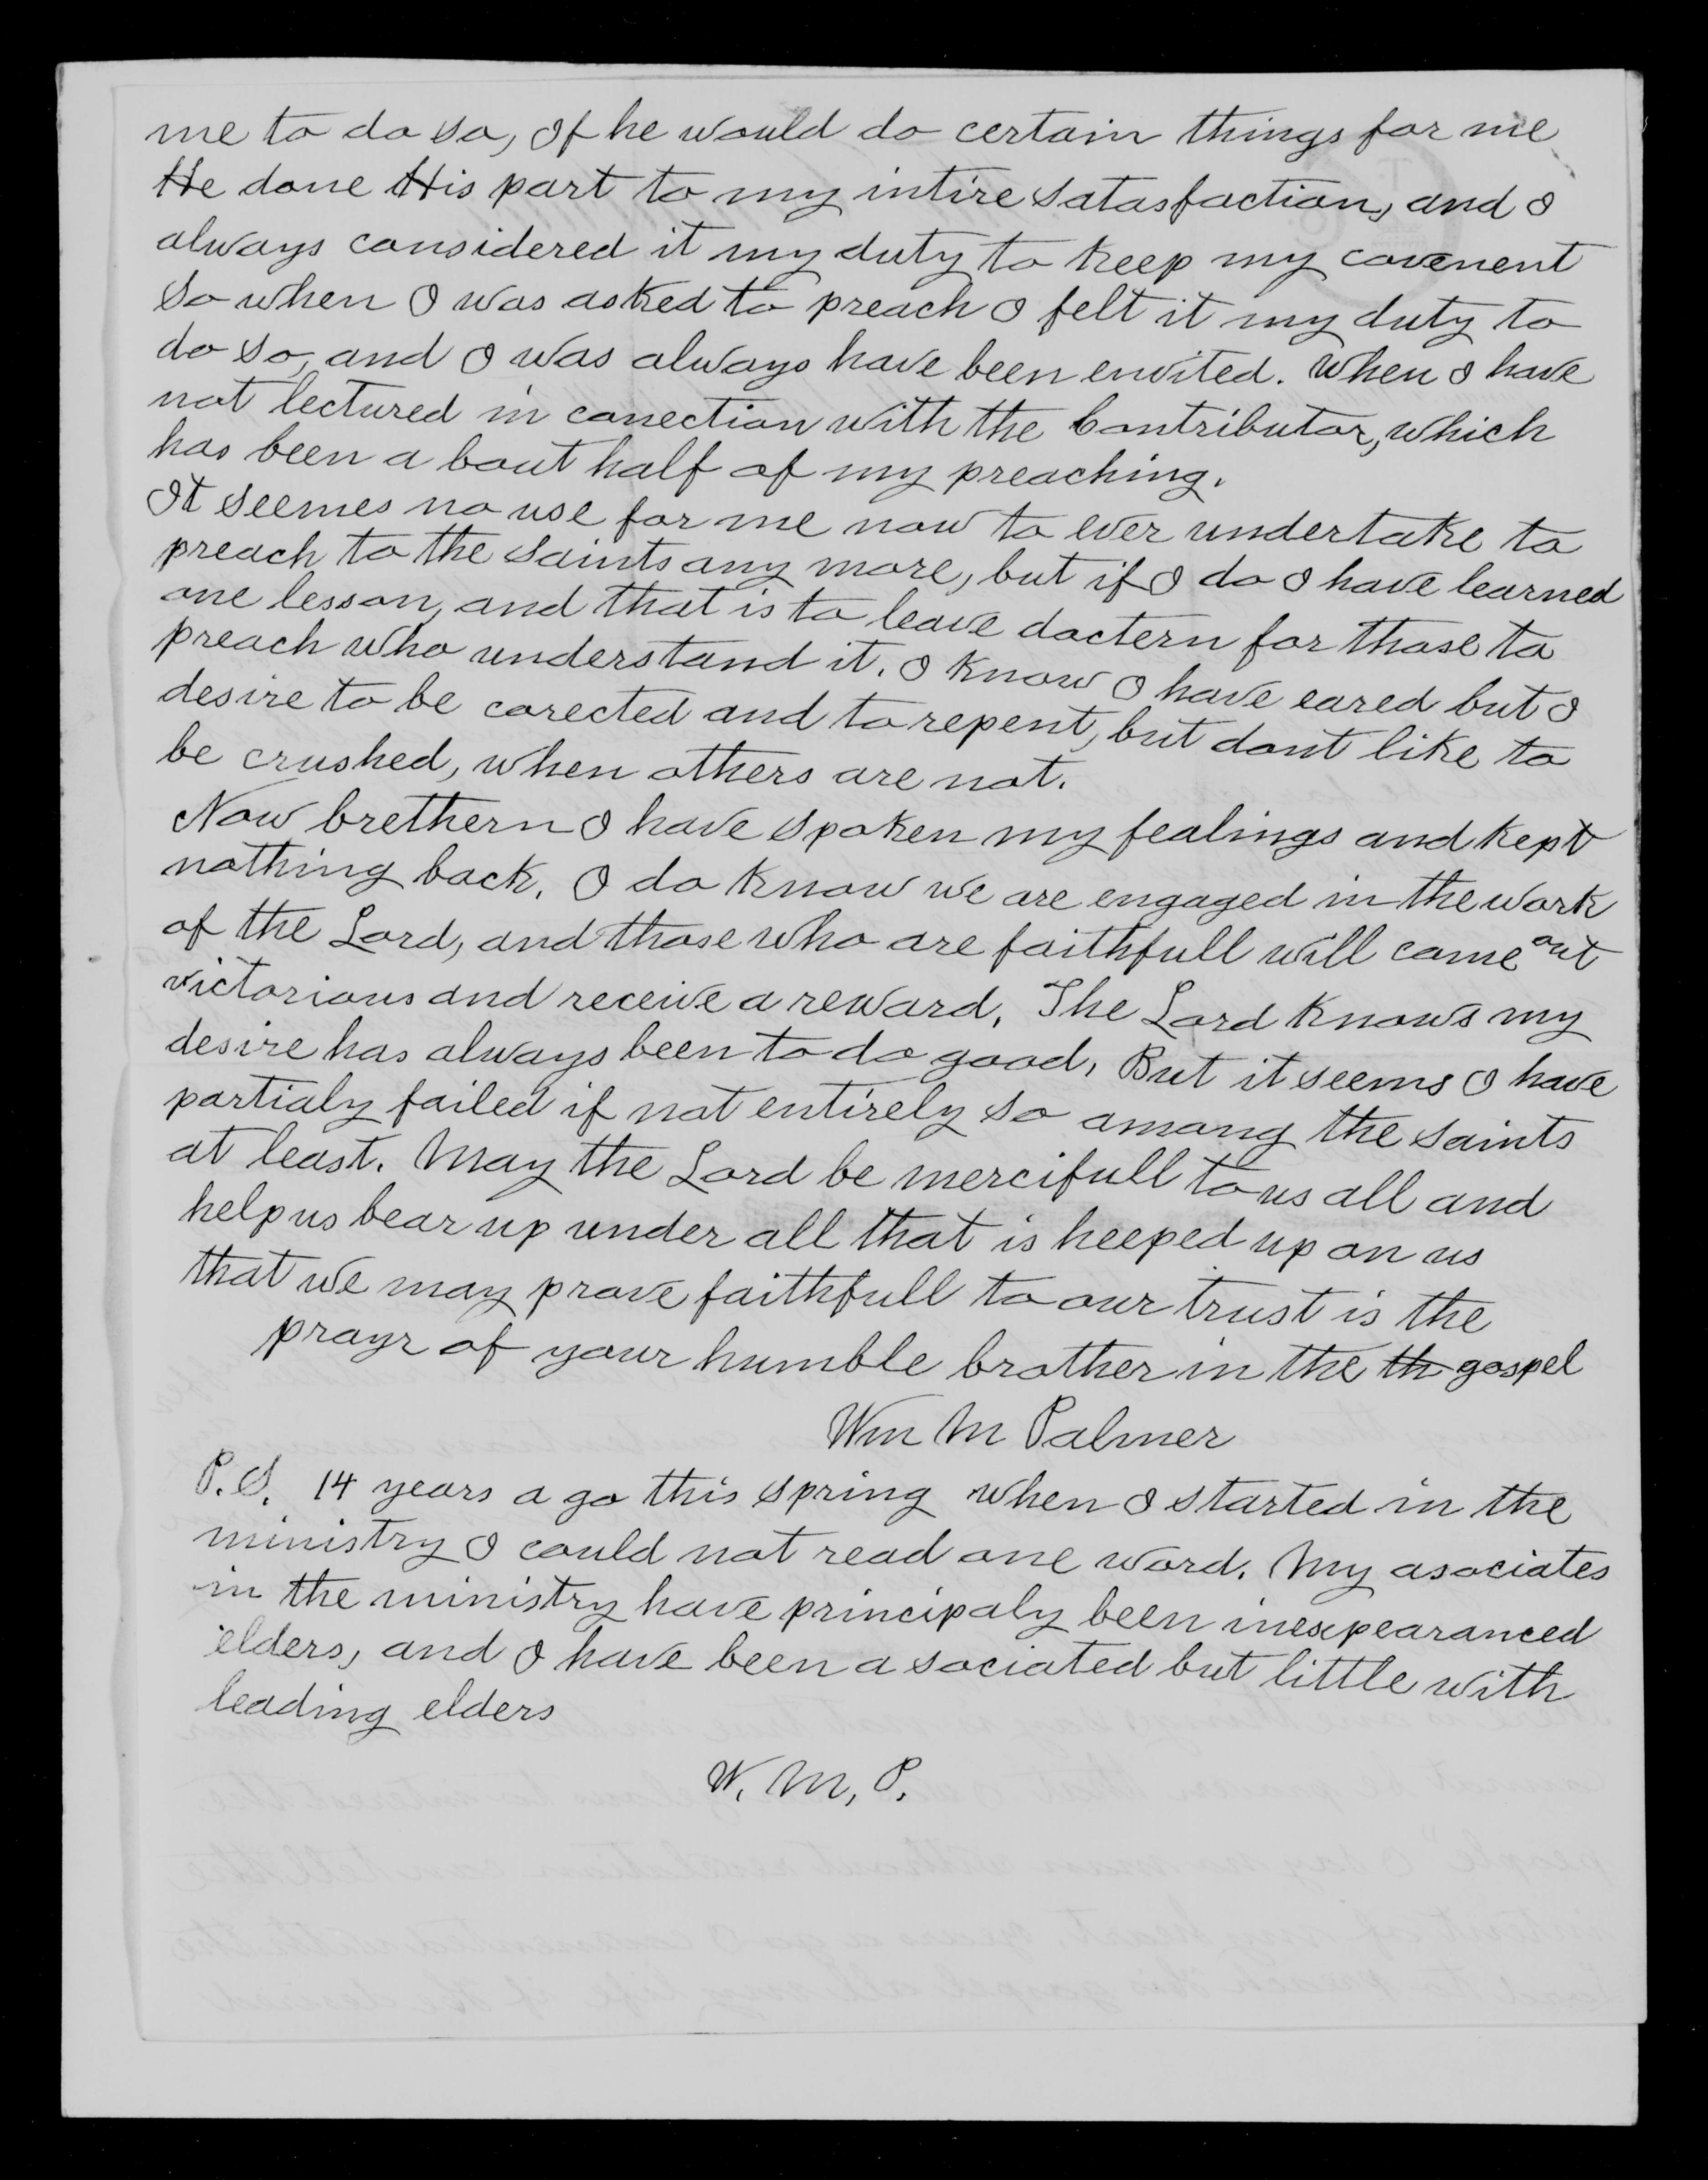 me to do so, If he would do certain things for me
He done His part to my intire satasfaction, and I
always considered it my duty to keep my covenent
So when I was asked to preach I felt it my duty to
do so, and I was always have been envited. When I have
not lectured in conection with the Contributor, which
has been a bout half of my preaching.
It seemes no use for me now to ever undertake to
preach to the saints any more, but if I do I have learned
one lesson, and that is to leave doctern for those to
preach who understand it. I know I have eared but I
desire to be corected and to repent, but dont like to
be crushed, when others are not.
Now brethern I have spoken my fealings and kept
nothing back. I do know we are engaged in the work
of the Lord, and those who are faithfull will come out
victorious and receive a reward. The Lord knows my
desire has always been to do good, But it seems I have
partialy failed if not entirely so among the saints
at least. May the Lord be mercifull to us all and
help us bear up under all that is heeped up on us
that we may prove faithfull to our trust is the
prayr of your humble brother in the th gospel
Wm M Palmer
P.S. 14 years a go this spring when I started in the
ministry I could not read one word. My asociates
in the ministry have principaly been inexpearanced
elders, and I have been a sociated but little with
leading elders
W. M, P.